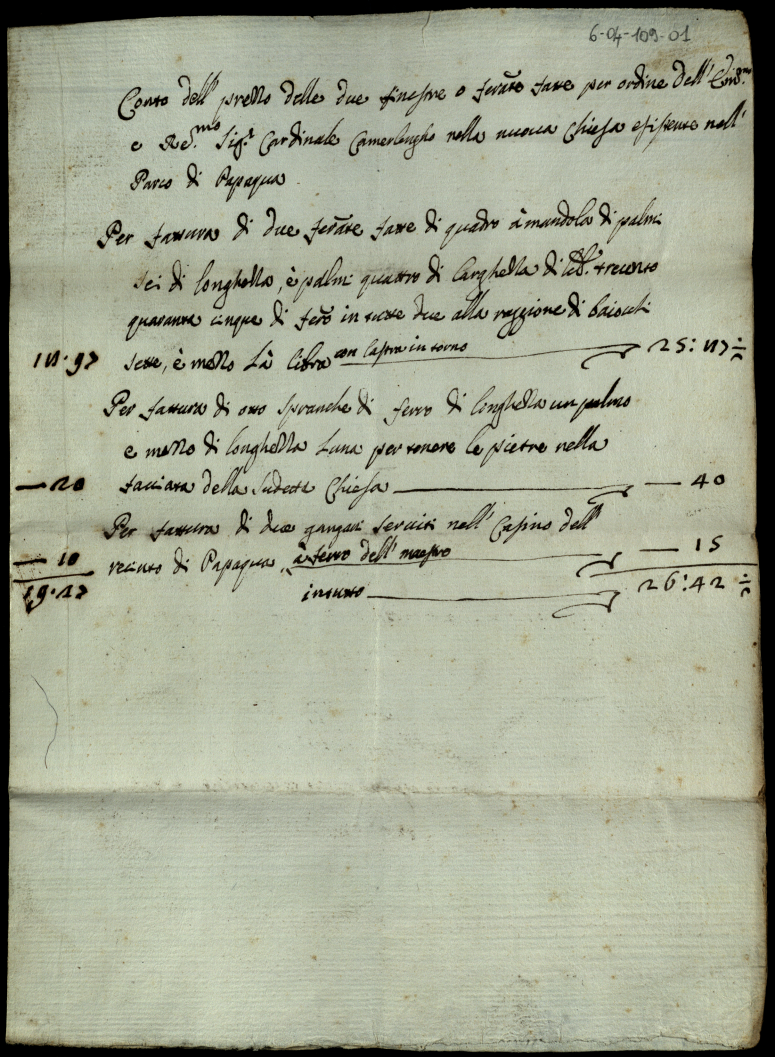 6-04-109-01
Conto dell' prezzo delle due finestre o ferate fatte per ordine dell' Em.mo
e Re.mo Sig.r Cardinale Camerlengho nella nuova Chiesa esistente nell'
Parco di Papaqua
Per fattura di due ferate fatte di quadro à mandola di palmi
sei di longhezza, è palmi quattro di larghezza di lib. trecento
quaranta cinque di fero in tutte due alla raggione di baiochi
sette, è mezzo la libra con lastra in torno 25:
Per fattura di otto spranche di ferro di longhezza un palmo
e mezzo di longhezza l'una per tenere le pietre nella
— 20 faciata della sudetta Chiesa — 40
Per fattura di due gangani serviti nell' Casino dell'
— 10 recinto di Papaqua, à ferro dell' maestro — 15
in tutto 26:42